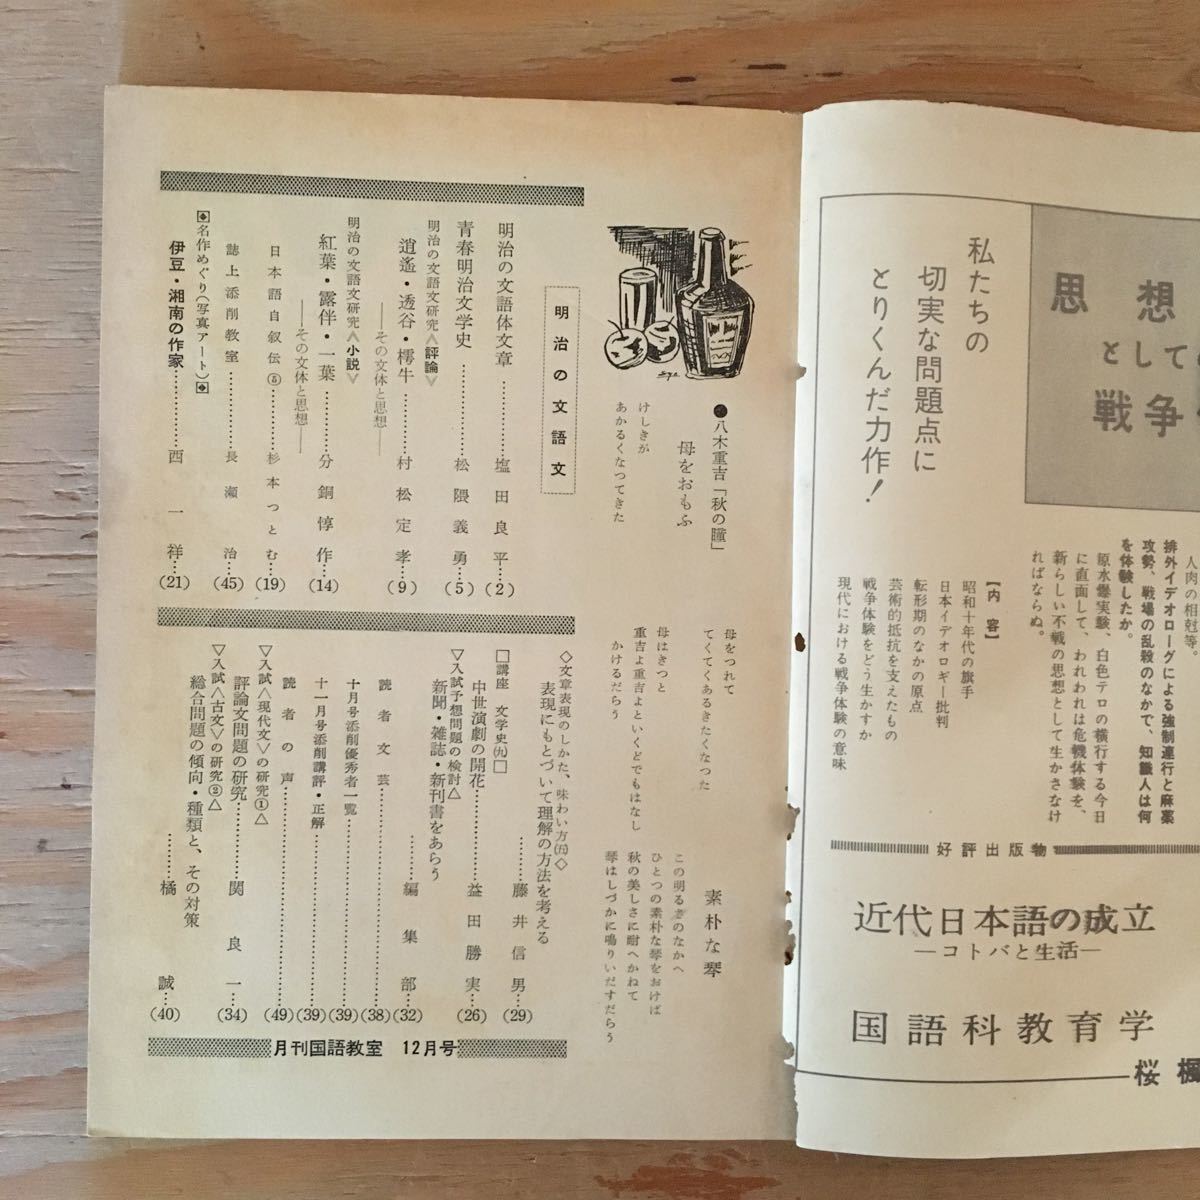 思想
として
戦争
私たちの
切実な問題点に
とりくんだ力作！
人肉の相剋等。
排外イデオローグによる強制連行と麻薬
攻勢、戦場の乱殺のなかで、知識人は何
を体験したか。
原水爆実験、白色テロの横行する今日
に直面して、われわれは危機体験を、
新らしい不戦の思想として生かさなけ
ればならぬ。
【内容】
昭和十年代の旗手
日本イデオロギー批判
転形期のなかの原点
芸術的抵抗を支えたもの
戦争体験をどう生かすか
現代における戦争体験の意味
好評出版物
近代日本語の成立
―コトバと生活―
国語科教育学
桜楓
●八木重吉「秋の瞳」
母をおもふ
けしきが
あかるくなつてきた
母をつれて
てくてくあるきたくなつた
母はきつと
重吉よ重吉よといくどでもはなし
かけるだらう
素朴な琴
この明るさのなかへ
ひとつの素朴な琴をおけば
秋の美しさに耐へかねて
琴はしづかに鳴りいだすだらう
明治の文語文
明治の文語体文章………塩田良平…(2)
青春明治文学史………松隈義勇…(5)
明治の文語文研究〈評論〉
逍遙・透谷・樗牛………村松定孝…(9)
――その文体と思想――
明治の文語文研究〈小説〉
紅葉・露伴・一葉………分銅惇作…(14)
――その文体と思想――
日本語自叙伝⑤………杉本つとむ…(19)
誌上添削教室………長瀬治…(45)
◆名作めぐり(写真アート)◆
伊豆・湘南の作家………西一祥…(21)
◇文章表現のしかた、味わい方(五)◇
表現にもとづいて理解の方法を考える
………藤井信男…(29)
□講座 文学史(九)□
中世演劇の開花………益田勝実…(26)
▽入試予想問題の検討△
新聞・雑誌・新刊書をあらう
………編集部…(32)
読者文芸………(38)
十月号添削優秀者一覧………(39)
十一月号添削講評・正解………(39)
読者の声………(49)
▽入試〈現代文〉の研究①△
評論文問題の研究………関良一…(34)
▽入試〈古文〉の研究②△
総合問題の傾向・種類と、その対策
………橘誠…(40)
月刊国語教室 12月号